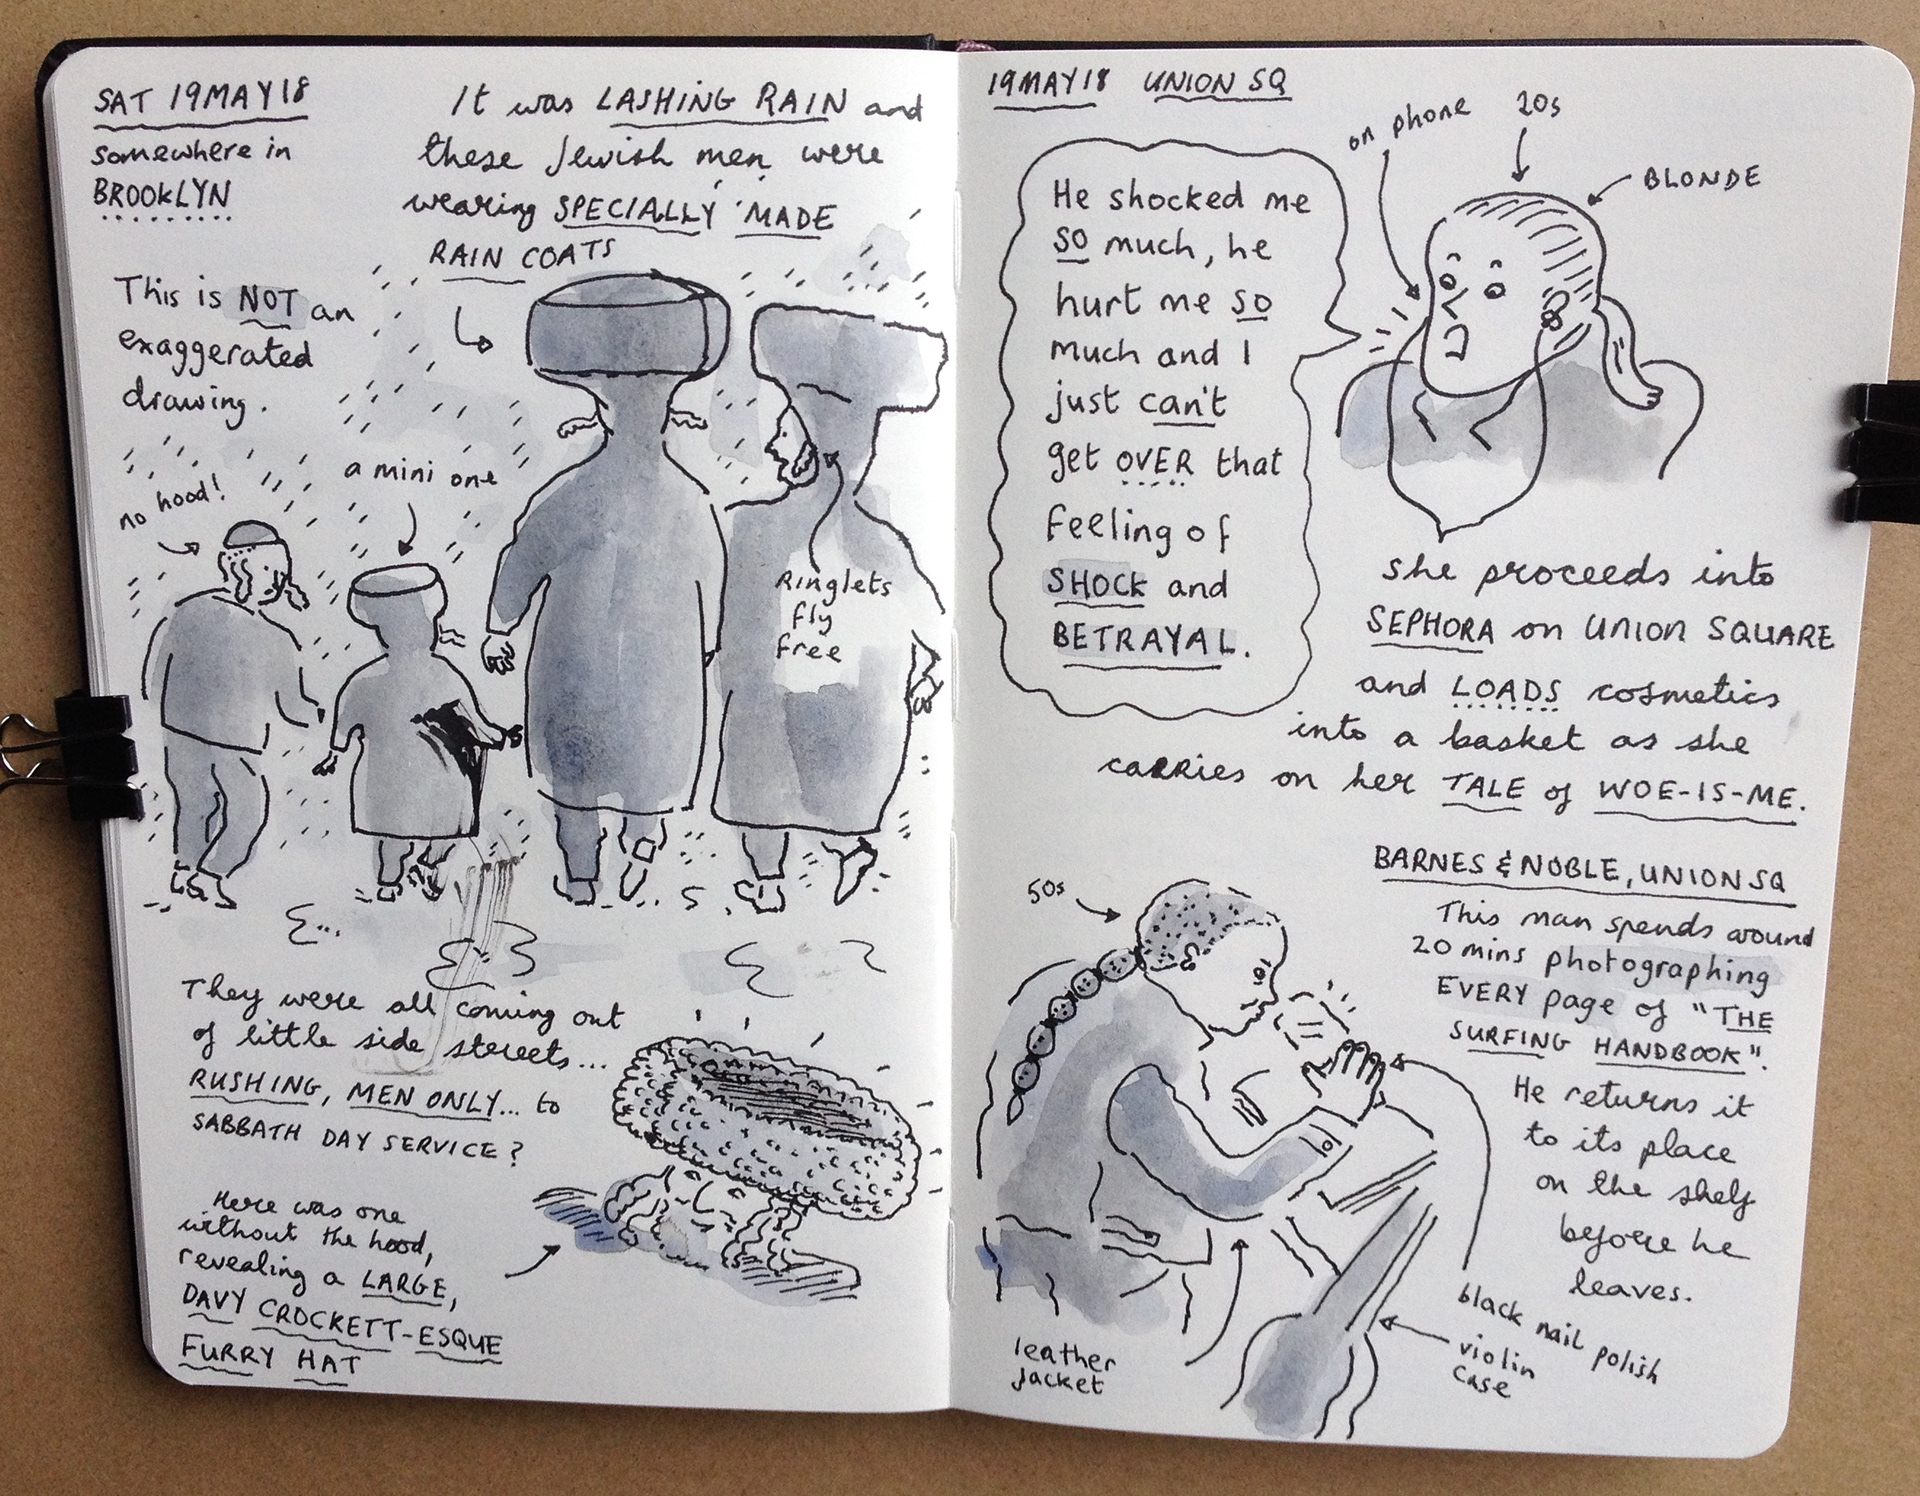 SAT 19MAY18
somewhere in
BROOKLYN
It was LASHING RAIN and
these Jewish men were
wearing SPECIALLY MADE
RAIN COATS
This is NOT an
exaggerated
drawing.
no hood!
a mini one
Ringlets
fly
free
They were all coming out
of little side streets...
RUSHING, MEN ONLY... to
SABBATH DAY SERVICE?
Here was one
without the hood,
revealing a LARGE,
DAVY CROCKETT-ESQUE
FURRY HAT
19MAY18 UNION SQ
on phone
20s
BLONDE
He shocked me
SO much, he
hurt me so
much and I
just can't
get OVER that
feeling of
SHOCK and
BETRAYAL.
she proceeds into
SEPHORA on UNION SQUARE
and LOADS cosmetics
into a basket as she
carries on her TALE of WOE-IS-ME.
BARNES & NOBLE, UNION SQ
50s
This man spends around
20 mins photographing
EVERY page of "THE
SURFING HANDBOOK".
He returns it
to its place
on the shelf
before he
leaves.
black nail polish
violin
case
leather
jacket